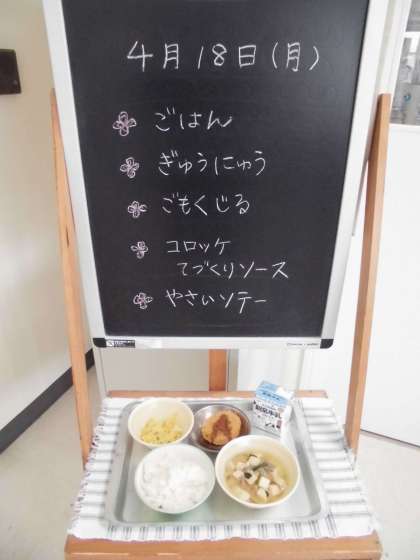 4月18日(月)
ごはん
ぎゅうにゅう
ごもくじる
コロッケ
てづくりソース
やさいソテー